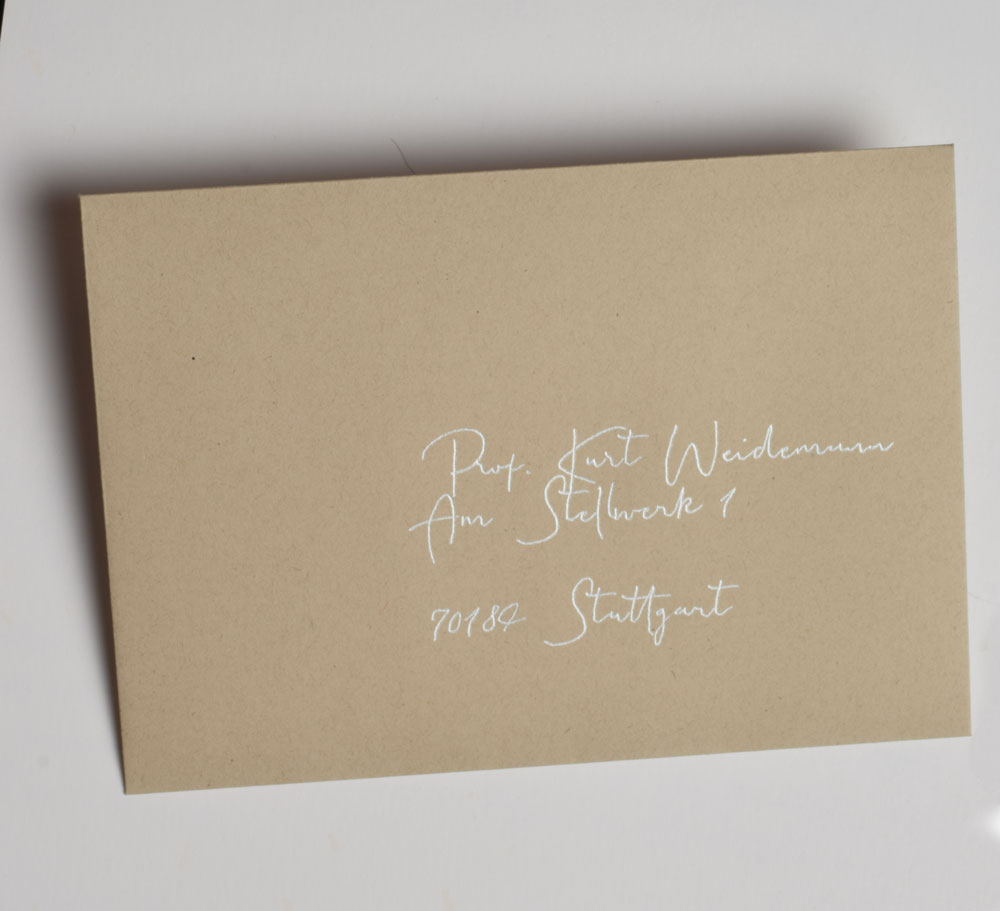 Prof. Kurt Weidemann
Am Stellwerk 1
70184 Stuttgart